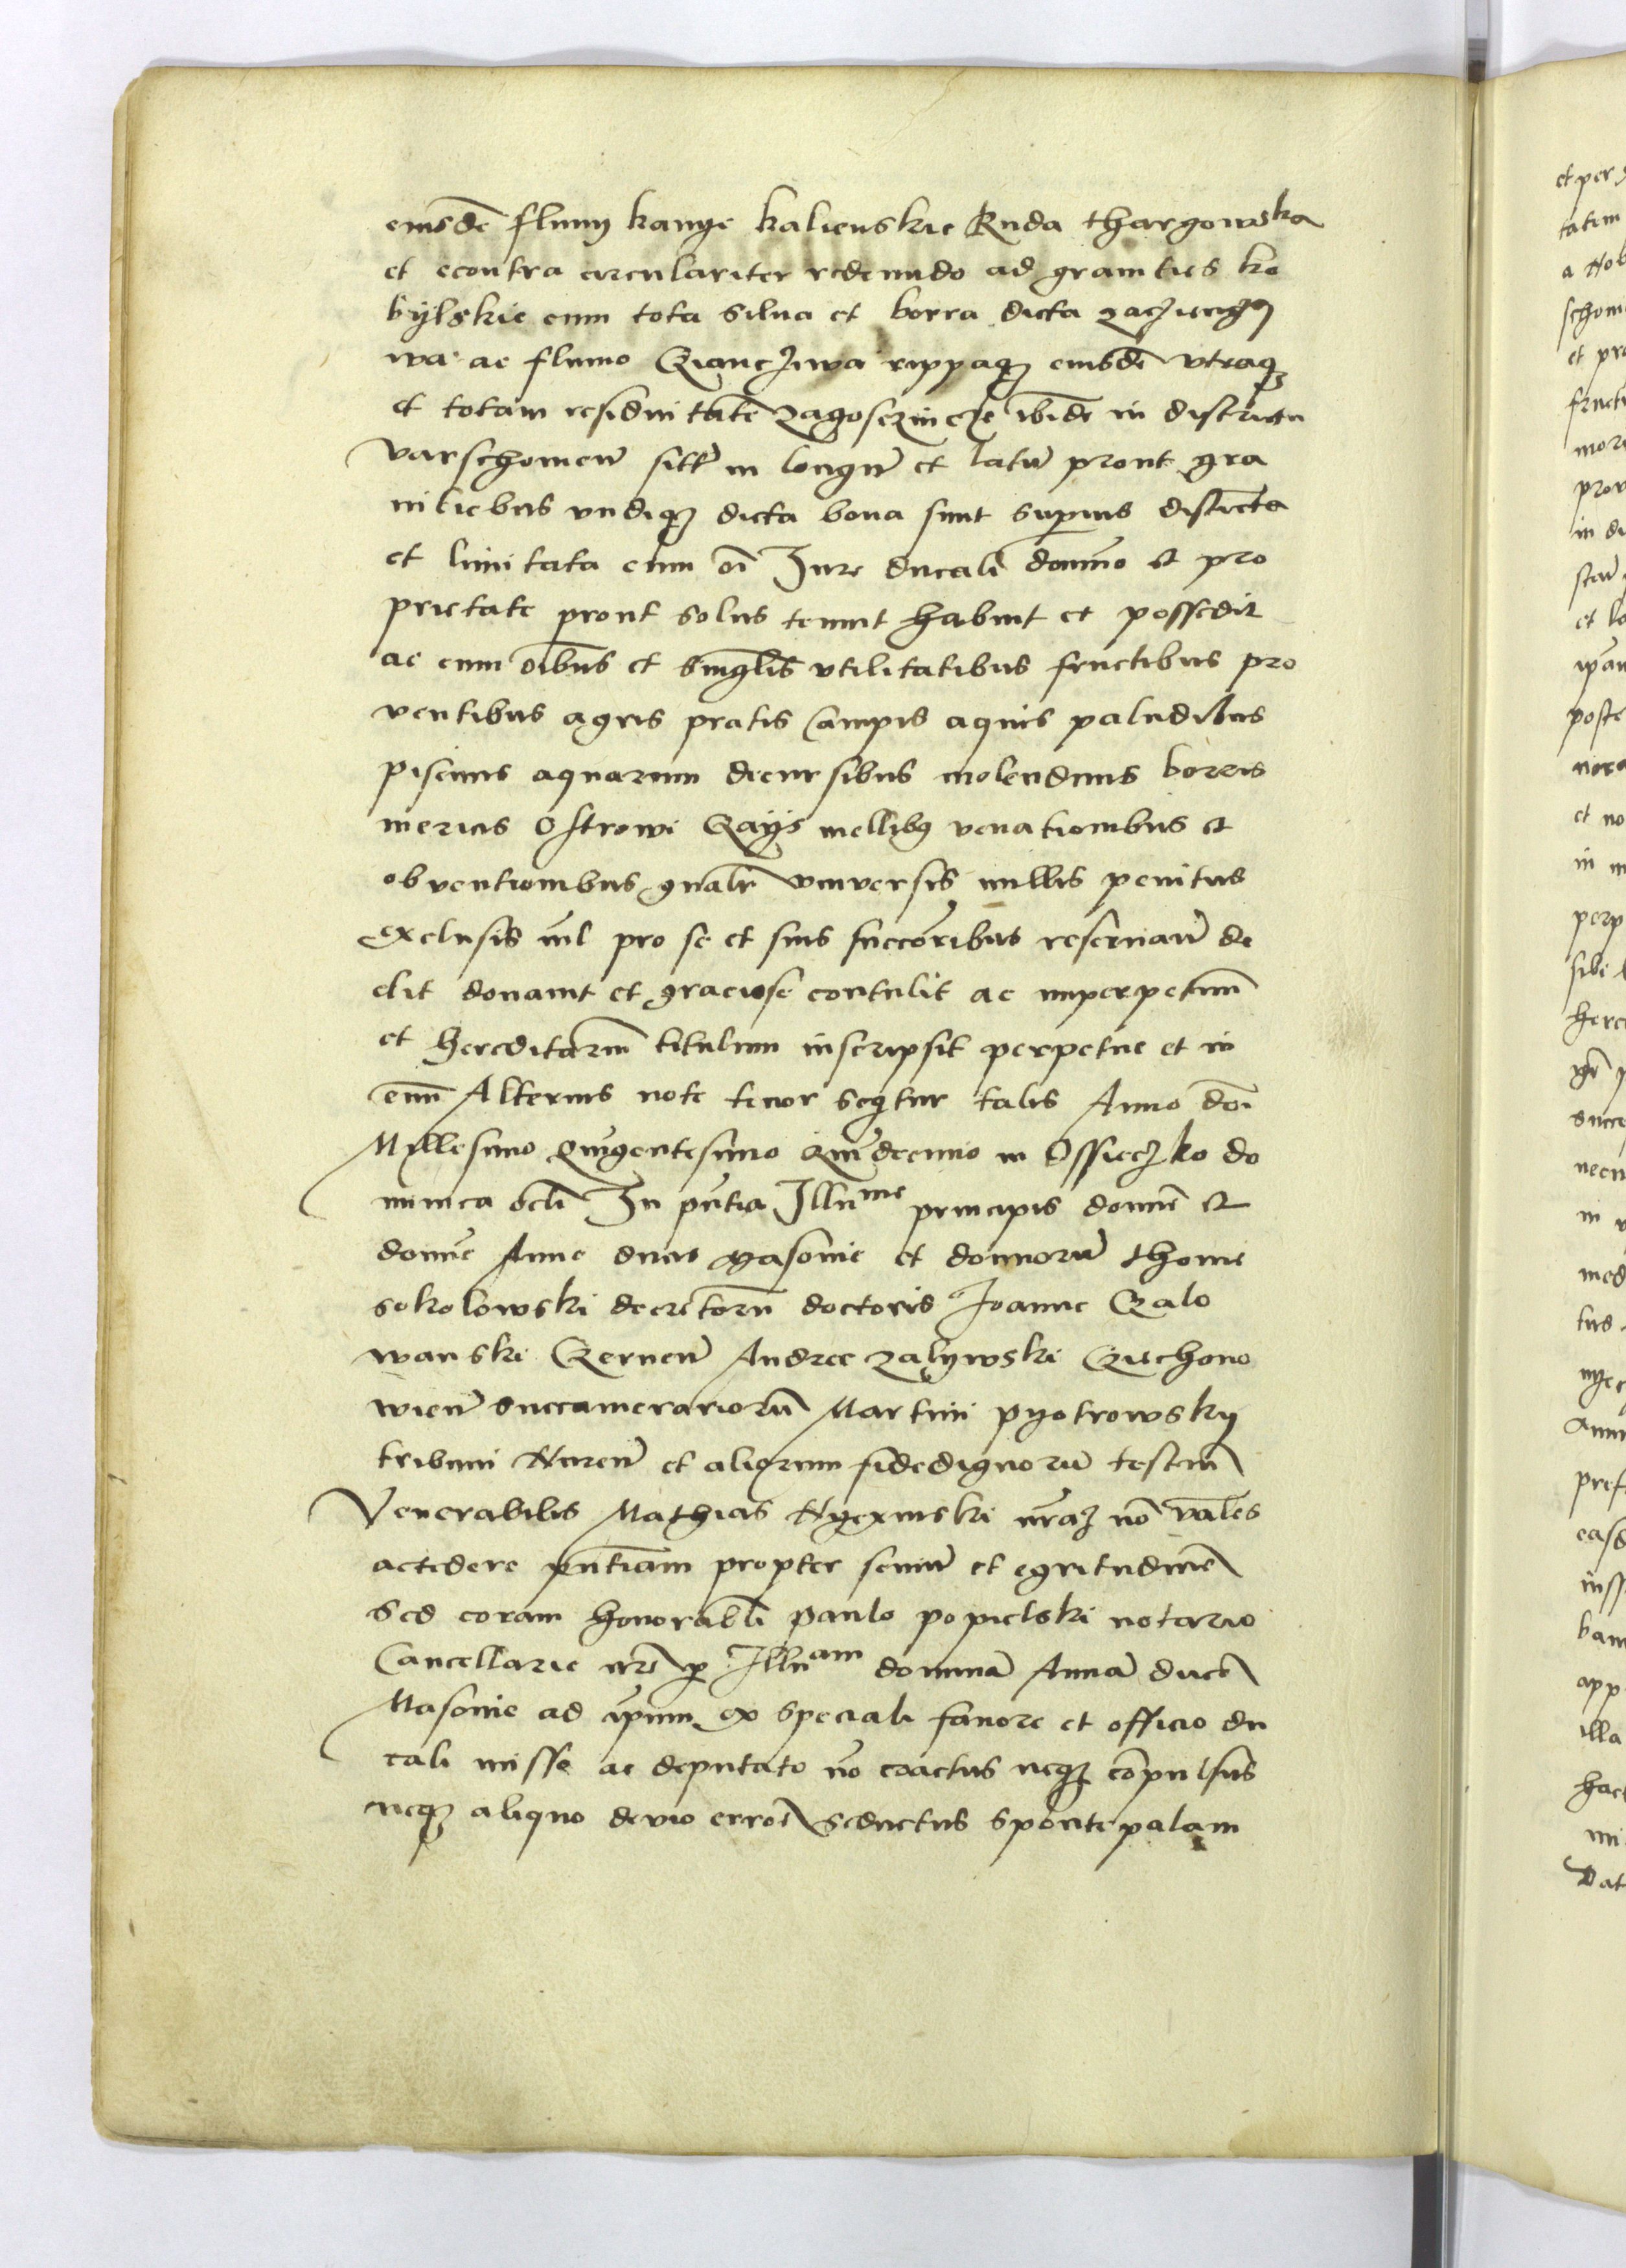 eiusdē fluuij kange kalienskie Ruda thargowska
et econtra circulariter redeundo ad granities ko
bylskie cum tota silua et borra dicta
wa ac fluuio rippaqȝ eiusdē vtraqȝ
et totam residuitatē ibidē in districtu
varschouieñ sitī in longū et latū prout gra
nitiebus vndiqȝ dicta bona sunt superius distīcta
et limitata cum oī Jure ducali dominio et pro
prietate prout solus tenuit habuit et possedit
ac cum oībus et singlīs vtilitatibus fructibus pro
ventibus agris pratis Campis aquis paludibus
piscinis aquarum decursibus molendinis borris
mericis Ostrowi Gayis mellibȝ venationibus et
obventionibus gnālr vniversis nullis penitus
exclusis nīl pro se et suis succōribus reseruañ de
dit donauit et graciose contulit ac imperpetuum
et hereditariū titulum inscripsit perpetue et in
euum Alterius note tenor seqitur talis Anno doī
Millesimo Quīgentesimo Quīdecimo in Ossieczko do
minica ocli In pñtia Illu^me principis domiē et
domīe Anne ducis Masouie et dominorū thome
sokolowski decretorū doctoris Joanne
wanski Czerneñ Andree zalywski Czichono
wieñ succamerariorū Martini pyotrowsky
tribuni Nureñ et aliorum fidedignorū testiū
Venerabilis Mathias nrāȝ nō valēs
accedere pñtiam propter seniū et egritudinē
Sed coram honorabli paulo popielski notario
Cancellarie nrē ꝑ Illu^am dominā Annā ducē
Masouie ad ipsum ex speciali fauore et officio du
cali misso ac deputato nō coactus neqȝ cōpulsus
neqȝ aliquo devio errore seductus sponte palam